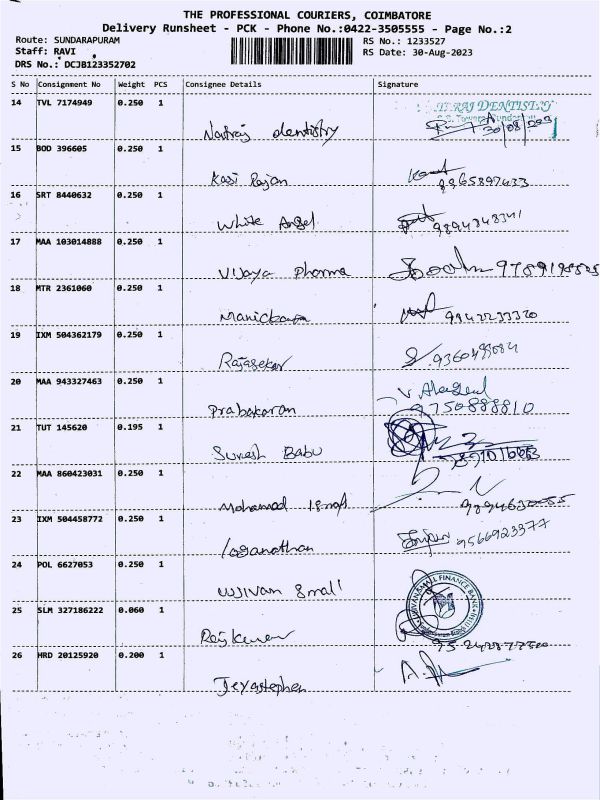 THE PROFESSIONAL COURIERS, COIMBATORE
Delivery Runsheet - PCK - Phone No.:0422-3505555 - Page No.:2
Route: SUNDARAPURAM RS No.: 1233527
Staff: RAVI RS Date: 30-Aug-2023
DRS No.: DCJB123352702
S No Consignment No Weight PCS Consignee Details Signature
14 TVL 7174949 0.250 1
RAJ DENTISTRY
dentistry 30/08/203
15 BOD 396605 0.250 1
Kasi Rajan
9865897433
16 SRT 8440632 0.250 1
White Angel
9894348341
17 MAA 103014888 0.250 1
Vijaya Pharma
18 MTR 2361060 0.250 1
9942233320
19 IXM 504362179 0.250 1
Rajasekar
20 MAA 943327463 0.250 1
Prabakaran 9750888810
21 TUT 145620 0.195 1
Suresh Babu
22 MAA 860423031 0.250 1
Mohamad
23 IXM 504458772 0.250 1
Loganathan 9566923377
24 POL 6627053 0.250 1
Ujjivan Small
UJJIVAN SMALL FINANCE BANK
25 SLM 327186222 0.060 1
Rajkumar
26 HRD 20125920 0.200 1
Jeyastephen